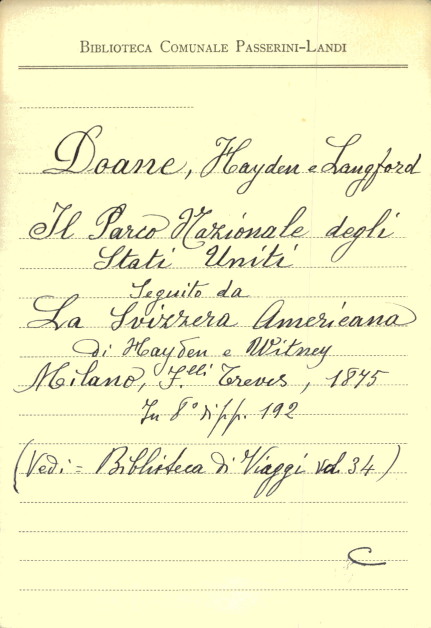 BIBLIOTECA COMUNALE PASSERINI-LANDI
Doane, Hayden e Langford
Il Parco Nazionale degli
Stati Uniti
Seguito da
La Svizzera Americana
di Hayden e Witney
Milano, F.lli Treves, 1875
In 8° di pp. 192
(Vedi = Biblioteca di Viaggi vol. 34)
C